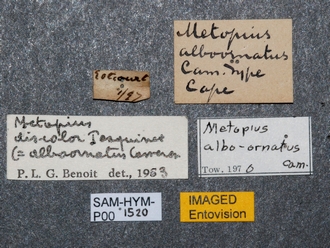 Metopius
alboornatus
Cam. Type
Cape
Estcourt
Metopius
discolor Tosquinet
(= alboornatus Cameron
P. L. G. Benoit det., 1953
Metopius
albo-ornatus
Cam.
Tow. 1976
SAM-HYM-
P001520
IMAGED
Entovision